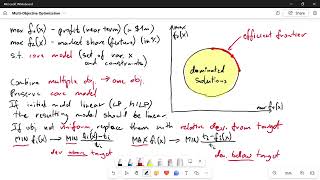 Microsoft Whiteboard
Multi-Objective Optimization
max f₁(x) - profit (near term) (in $1m)
max f₂(x) - market share (future) (in %)
s.t. core model (set of var. x
and constraints)
Combine multiple obj. → one obj.
Preserve core model
If initial model linear (LP, MILP)
the resulting model should be linear
If obj. not uniform, replace them with relative dev. from target
MIN fᵢ(x) → MIN fᵢ(x)-tᵢ / tᵢ
MAX fᵢ(x) → MIN tᵢ-fᵢ(x) / tᵢ
dev. above target
dev. below target
max f₂(x)
efficient frontier
dominated
solutions
max f₁(x)